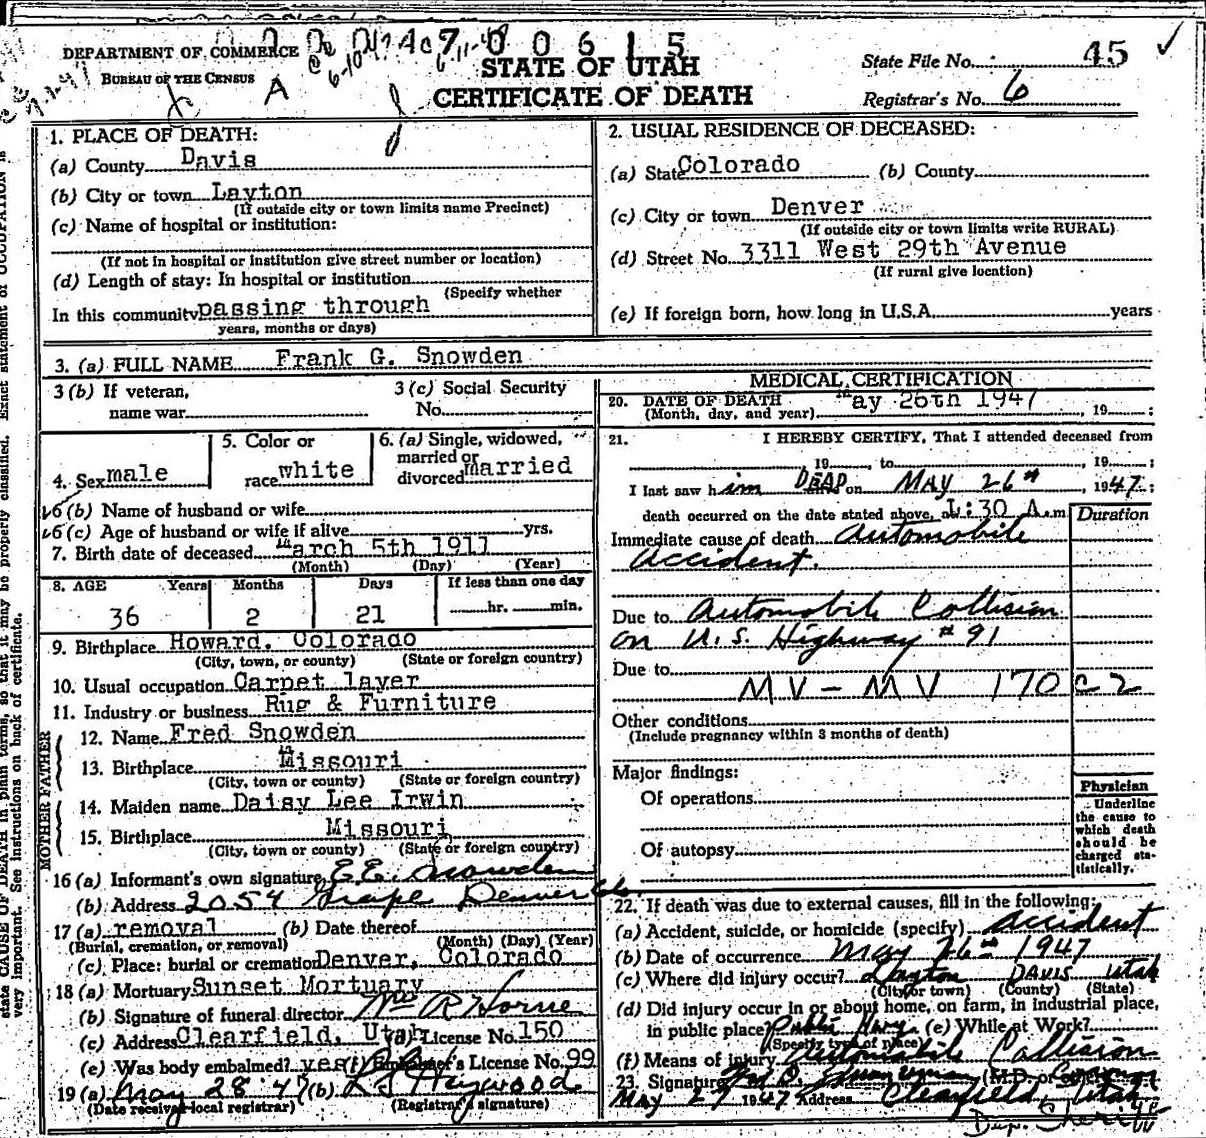 DEPARTMENT OF COMMERCE
BUREAU OF THE CENSUS
A
00615
STATE OF UTAH
CERTIFICATE OF DEATH
State File No. 45
Registrar's No. 6
1. PLACE OF DEATH:
(a) County Davis
(b) City or town Layton
(If outside city or town limits name Precinct)
(c) Name of hospital or institution:
(If not in hospital or institution give street number or location)
(d) Length of stay: In hospital or institution
(Specify whether
In this community passing through
years, months or days)
2. USUAL RESIDENCE OF DECEASED:
(a) State Colorado (b) County
(c) City or town Denver
(If outside city or town limits write RURAL)
(d) Street No. 3311 West 29th Avenue
(If rural give location)
(e) If foreign born, how long in U.S.A. years
3. (a) FULL NAME Frank G. Snowden
3 (b) If veteran,
name war
3 (c) Social Security
No.
4. Sex male
5. Color or
race white
6. (a) Single, widowed,
married or
divorced married
6 (b) Name of husband or wife
6 (c) Age of husband or wife if alive yrs.
7. Birth date of deceased March 5th 1911
(Month) (Day) (Year)
8. AGE Years Months Days If less than one day
36 2 21 hr. min.
9. Birthplace Howard, Colorado
(City, town, or county) (State or foreign country)
10. Usual occupation Carpet layer
11. Industry or business Rug & Furniture
FATHER
12. Name Fred Snowden
13. Birthplace Missouri
(City, town or county) (State or foreign country)
MOTHER
14. Maiden name Daisy Lee Irwin
15. Birthplace Missouri
(City, town or county) (State or foreign country)
16 (a) Informant's own signature E.E. Snowden
(b) Address 2054 Grape Denver Colo.
17 (a) removal (b) Date thereof
(Burial, cremation, or removal) (Month) (Day) (Year)
(c) Place: burial or cremation Denver, Colorado
18 (a) Mortuary Sunset Mortuary
(b) Signature of funeral director Wm R Horne
(c) Address Clearfield, Utah (d) License No. 150
(e) Was body embalmed? yes (f) Embalmer's License No. 99
19 (a) May 28 '47 (b) Heywood
(Date received local registrar) (Registrar's signature)
MEDICAL CERTIFICATION
20. DATE OF DEATH May 26th 1947
(Month, day, and year) , 19 ;
21. I HEREBY CERTIFY, That I attended deceased from
, 19 , to , 19 ;
I last saw him DEAD on MAY 26th 1947;
death occurred on the date stated above, at 1:30 A.m
Duration
Immediate cause of death Automobile
Accident.
Due to Automobile Collision
on U.S. Highway #91
Due to
MV - MV 170 c 2
Other conditions
(Include pregnancy within 3 months of death)
Major findings:
Of operations
Of autopsy
Physician
Underline
the cause to
which death
should be
charged sta-
tistically.
22. If death was due to external causes, fill in the following:
(a) Accident, suicide, or homicide (specify) Accident
(b) Date of occurrence May 26th 1947
(c) Where did injury occur? Layton DAVIS Utah
(City or town) (County) (State)
(d) Did injury occur in or about home, on farm, in industrial place,
in public place? Public Hwy. (e) While at Work?
(Specify type of place)
(f) Means of injury Automobile Collision
23. Signature (M.D. or
May 27 1947 Address Clearfield, Utah
Dep. Sheriff
state CAUSE OF DEATH in plain terms, so that it may be properly classified. Exact statement of OCCUPATION is
very important. See instructions on back of certificate.